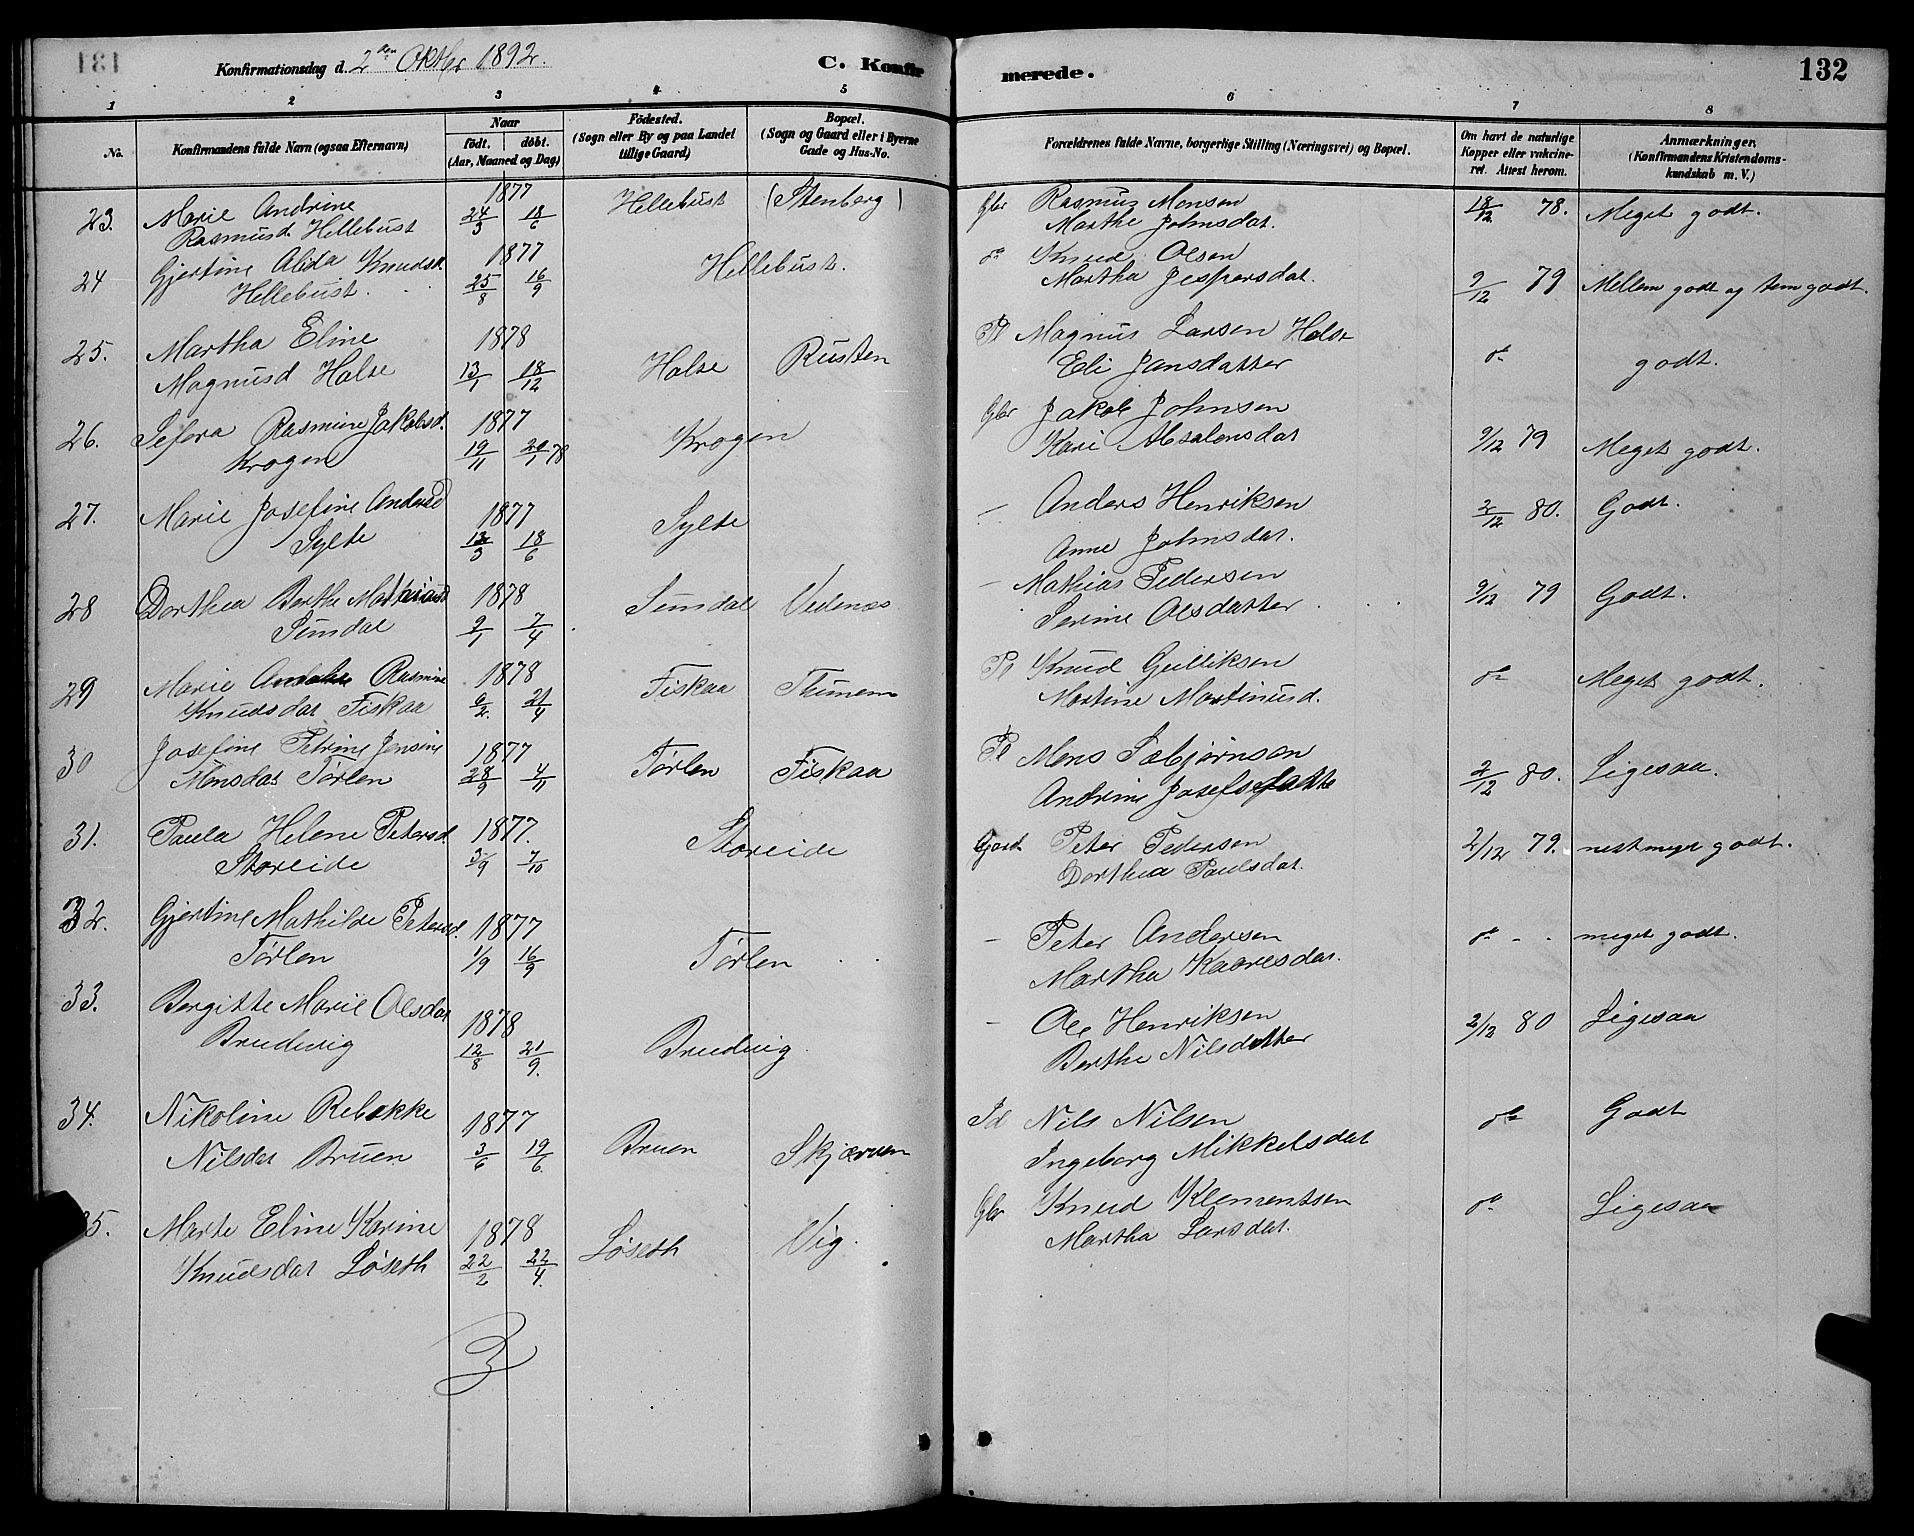 181
Konfirmationsdag d. 2den Oktbr 1892.
C. Konfir
merede.
132
1 2 3 4 5 6 7 8
No.
Konfirmandens fulde Navn (ogsaa Efternavn)
Naar
födt. döbt.
(Aar, Maaned og Dag)
Födested.
(Sogn eller By og paa Landet
tillige Gaard)
Bopæl.
(Sogn og Gaard eller i Byerne
Gade og Hus-No.
Forældrenes fulde Navne, borgerlige Stilling (Næringsvei) og Bopæl.
Om havt de naturlige
Kopper eller vakcine-
ret. Attest herom.
Anmærkninger.
(Konfirmandens Kristendoms-
kundskab m. V.)
23. Marie Andrine 1877 Hellebust (Stenberg) Gbr Rasmus Monsen 18/12 78. Meget godt.
Rasmusd. Hellebust 24/5 18/6 Marthe Johnsdat.
24 Gjertine Alida Knudsd. 1877 Hellebust. do Knud Olsen
Hellebust. 25/8 16/9 Martha Jespersdat. 9/12 79 Mellem godt og tem godt.
25. Martha Eline 1878 Halse Rusten Pl Magnus Larsen Halse
Magnusd Halse 13/1 18/12 Eli Jansdatter do godt.
26. Sefera Rasmine Jakobsd. 1877 Krogen Gbr Jakob Johnsen
Krogen 19/11 20/1 78 Kari Absalonsdat 9/12 79 Meget godt.
27. Marie Josefine Andersd 1877 Sylte - Anders Henriksen 2/12 80. Godt.
Sylte 13/5 18/6 Anne Johnsdat.
28 Dorthea Berthe Mathiasd 1878 Sundal Vedenæs - Mathias Pedersen 9/12 79 Godt.
Sundal 9/1 7/4 Serine Olsdatter
29 Marie Rasmine 1878 Fiskaa Thunem Pl Knud Gulliksen do Meget godt.
Knudsdat Fiskaa 6/2. 21/4 Martine Martinusd.
30 Josefine Petrine Jensine 1877 Tørlen Fiskaa Pl Mons Sæbjørnsen
Monsdat Tørlen 28/9 4/11 Andrine Josefsdatte 2/12 80. Ligesaa.
31. Paula Helene Petersd. 1877. Storeide Gjord Peter Pedersen 2/12 79. nest meget godt.
Storeide 3/9 7/10 Dorthea Paulsdat.
32. Gjertine Mathilde Petersd. 1877 Tørlen - Peter Andersen do - - meget godt.
Tørlen 1/9 16/9 Martha Kaaresdat.
33. Bergitte Marie Olsdat 1878 Brudevig. - Ole Henriksen 2/12 80 Ligesaa
Brudevig 12/8 21/9. Berthe Nilsdatter
34. Nikoline Rebekke 1877 Bruen Skjærven Id Nils Nilsen do Godt
Nilsdat Bruen 3/6 19/6. Ingeborg Mikkelsdat
35. Marte Eline Karine 1878 Løseth Vig. Gbr Knud Klementsen do Ligesaa
Knudsdat Løseth 22/2 22/4. Martha Larsdat.